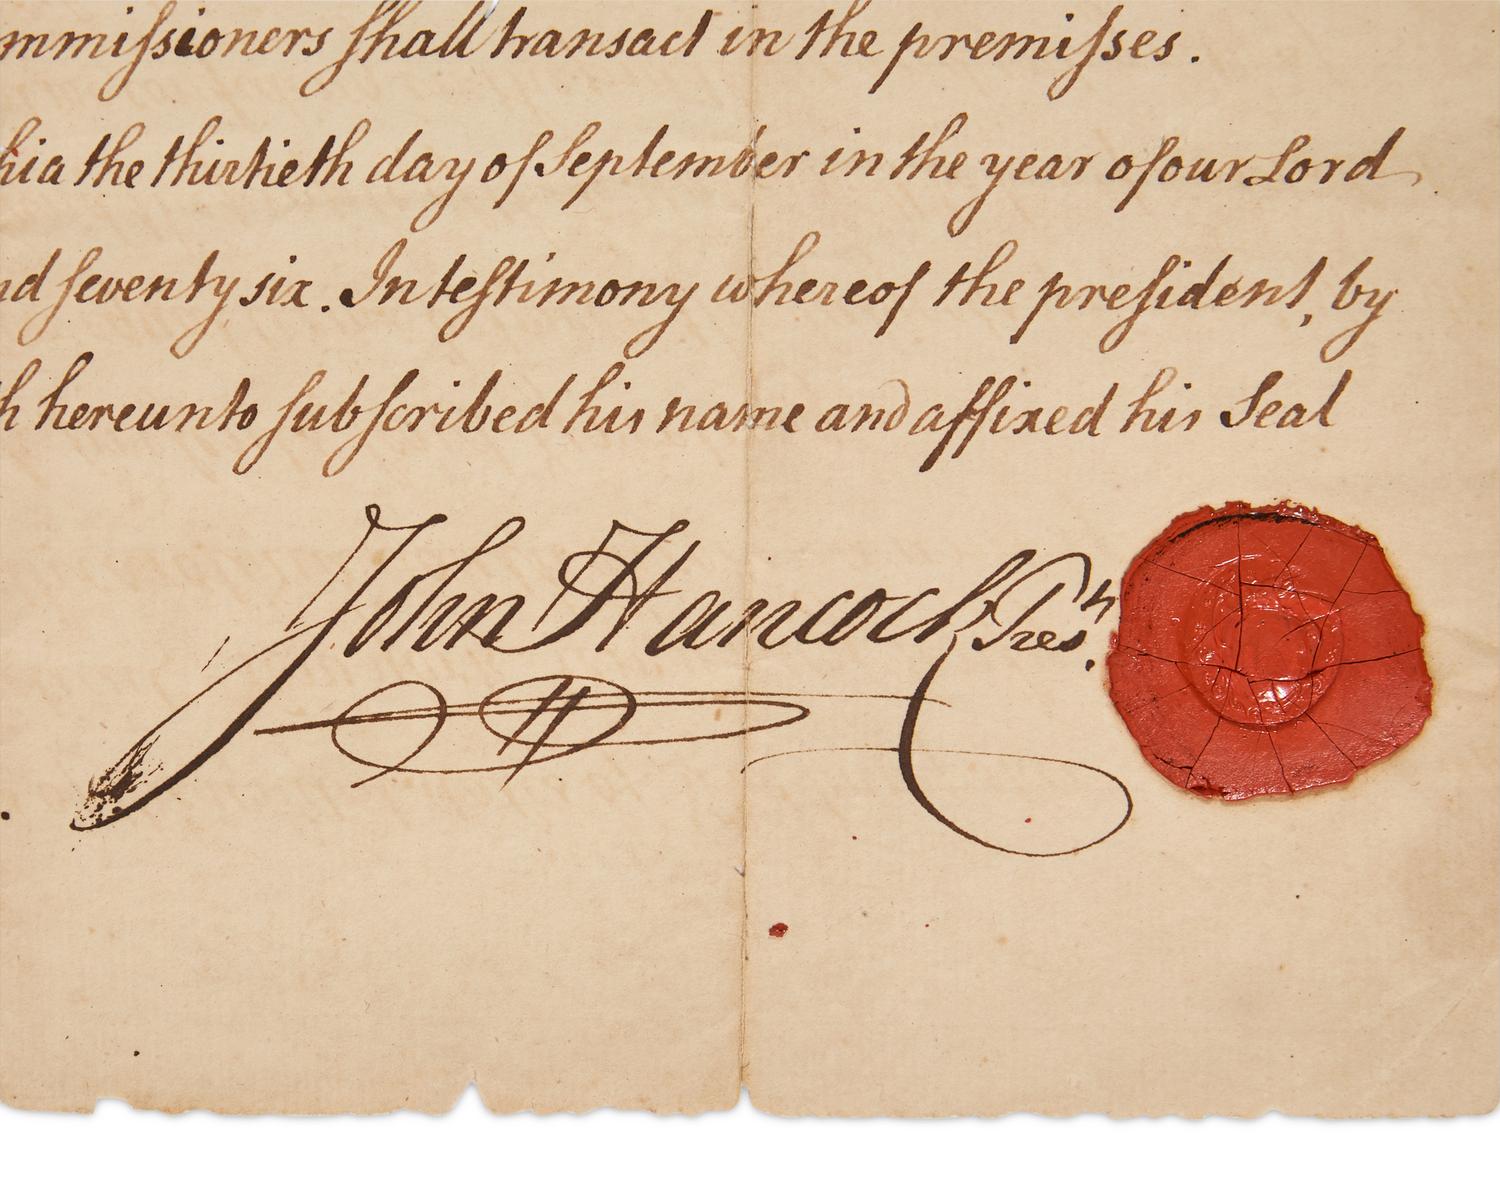 mmiſsioners ſhall transact in the premiſses.
hia the thirtieth day of September in the year of our Lord
nd ſeventy six. In teſtimony whereof the preſident, by
h hereunto ſubſcribed his name and affixed his Seal
John Hancock Presᵗ.